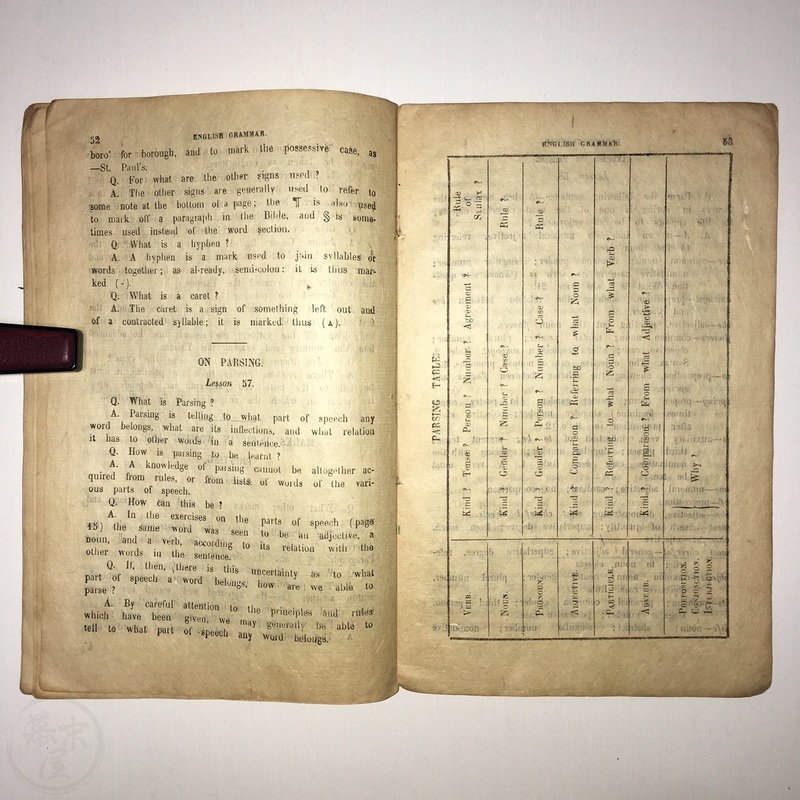 52
ENGLISH GRAMMAR.
boro' for borough, and to mark the possessive case, as
—St. Paul's.
Q. For what are the other signs used?
A. The other signs are generally used to refer to
some note at the bottom of a page; the ¶ is also used
to mark off a paragraph in the Bible, and § is some-
times used instead of the word section.
Q. What is a hyphen?
A. A hyphen is a mark used to join syllables or
words together; as al-ready, semi-colon: it is thus mar-
ked (-).
Q. What is a caret?
A. The caret is a sign of something left out and
of a contracted syllable; it is marked thus (▲).
ON PARSING.
Lesson 57.
Q. What is Parsing?
A. Parsing is telling to what part of speech any
word belongs, what are its inflections, and what relation
it has to other words in a sentence.
Q. How is parsing to be learnt?
A. A knowledge of parsing cannot be altogether ac-
quired from rules, or from lists of words of the vari-
ous parts of speech.
Q. How can this be?
A. In the exercises on the parts of speech (page
15) the same word was seen to be an adjective, a
noun, and a verb, according to its relation with the
other words in the sentence.
Q. If, then, there is this uncertainty as to what
part of speech a word belongs, how are we able to
parse?
A. By careful attention to the principles and rules
which have been given, we may generally be able to
tell to what part of speech any word belongs.
ENGLISH GRAMMAR.
53
PARSING TABLE.
VERB. Kind? Tense? Person? Number? Agreement? Rule of Sntax?
NOUN. Kind? Gender? Number? Case? Rule?
PRONOUN. Kind? Gender? Person? Number? Case? Rule?
ADJECTIVE. Kind? Comparison? Referring to what Noun?
PARTICICLE. Kind? Referring to what Noun? From what Verb?
ADVERB. Kind? Comparison? From what Adjective?
PREPOSITION. CONJUNCTION. INTERJECTION. Why?